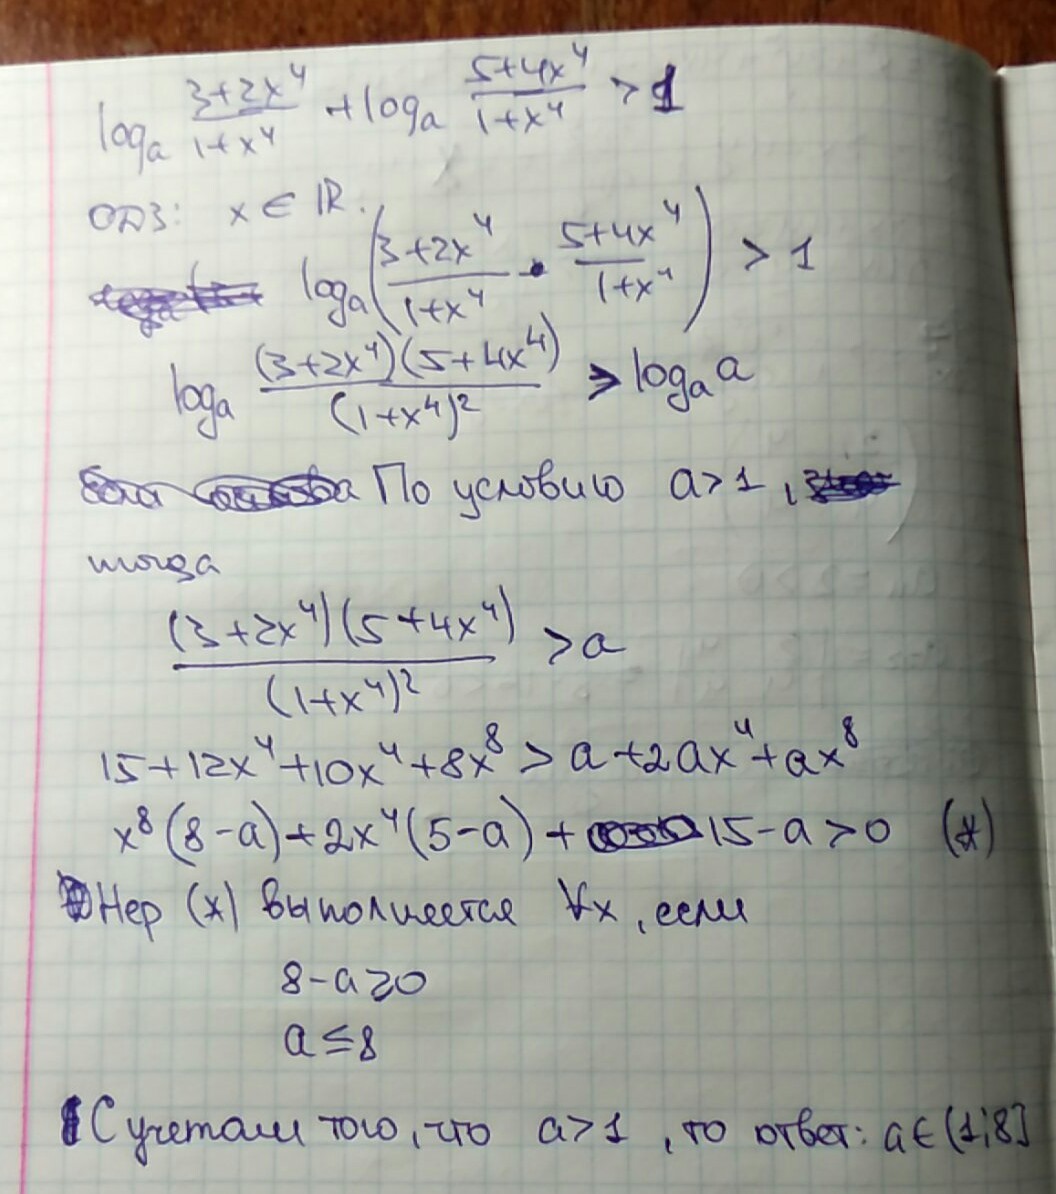 log_a (3+2x^4)/(1+x^4) + log_a (5+4x^4)/(1+x^4) > 1
ОДЗ: x ∈ ℝ.
log_a ((3+2x^4)/(1+x^4) · (5+4x^4)/(1+x^4)) > 1
log_a ((3+2x^4)(5+4x^4))/(1+x^4)^2 > log_a a
По условию a>1,
тогда
((3+2x^4)(5+4x^4))/(1+x^4)^2 > a
15+12x^4+10x^4+8x^8 > a+2ax^4+ax^8
x^8(8-a)+2x^4(5-a)+15-a>0 (*)
Нер (*) выполняется ∀x, если
8-a≥0
a≤8
С учетом того, что a>1, то ответ: a∈(1;8]